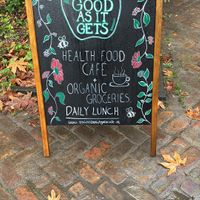 GOOD
AS IT
GETS
HEALTH FOOD
CAFE
+
ORGANIC
GROCERIES
DAILY LUNCH